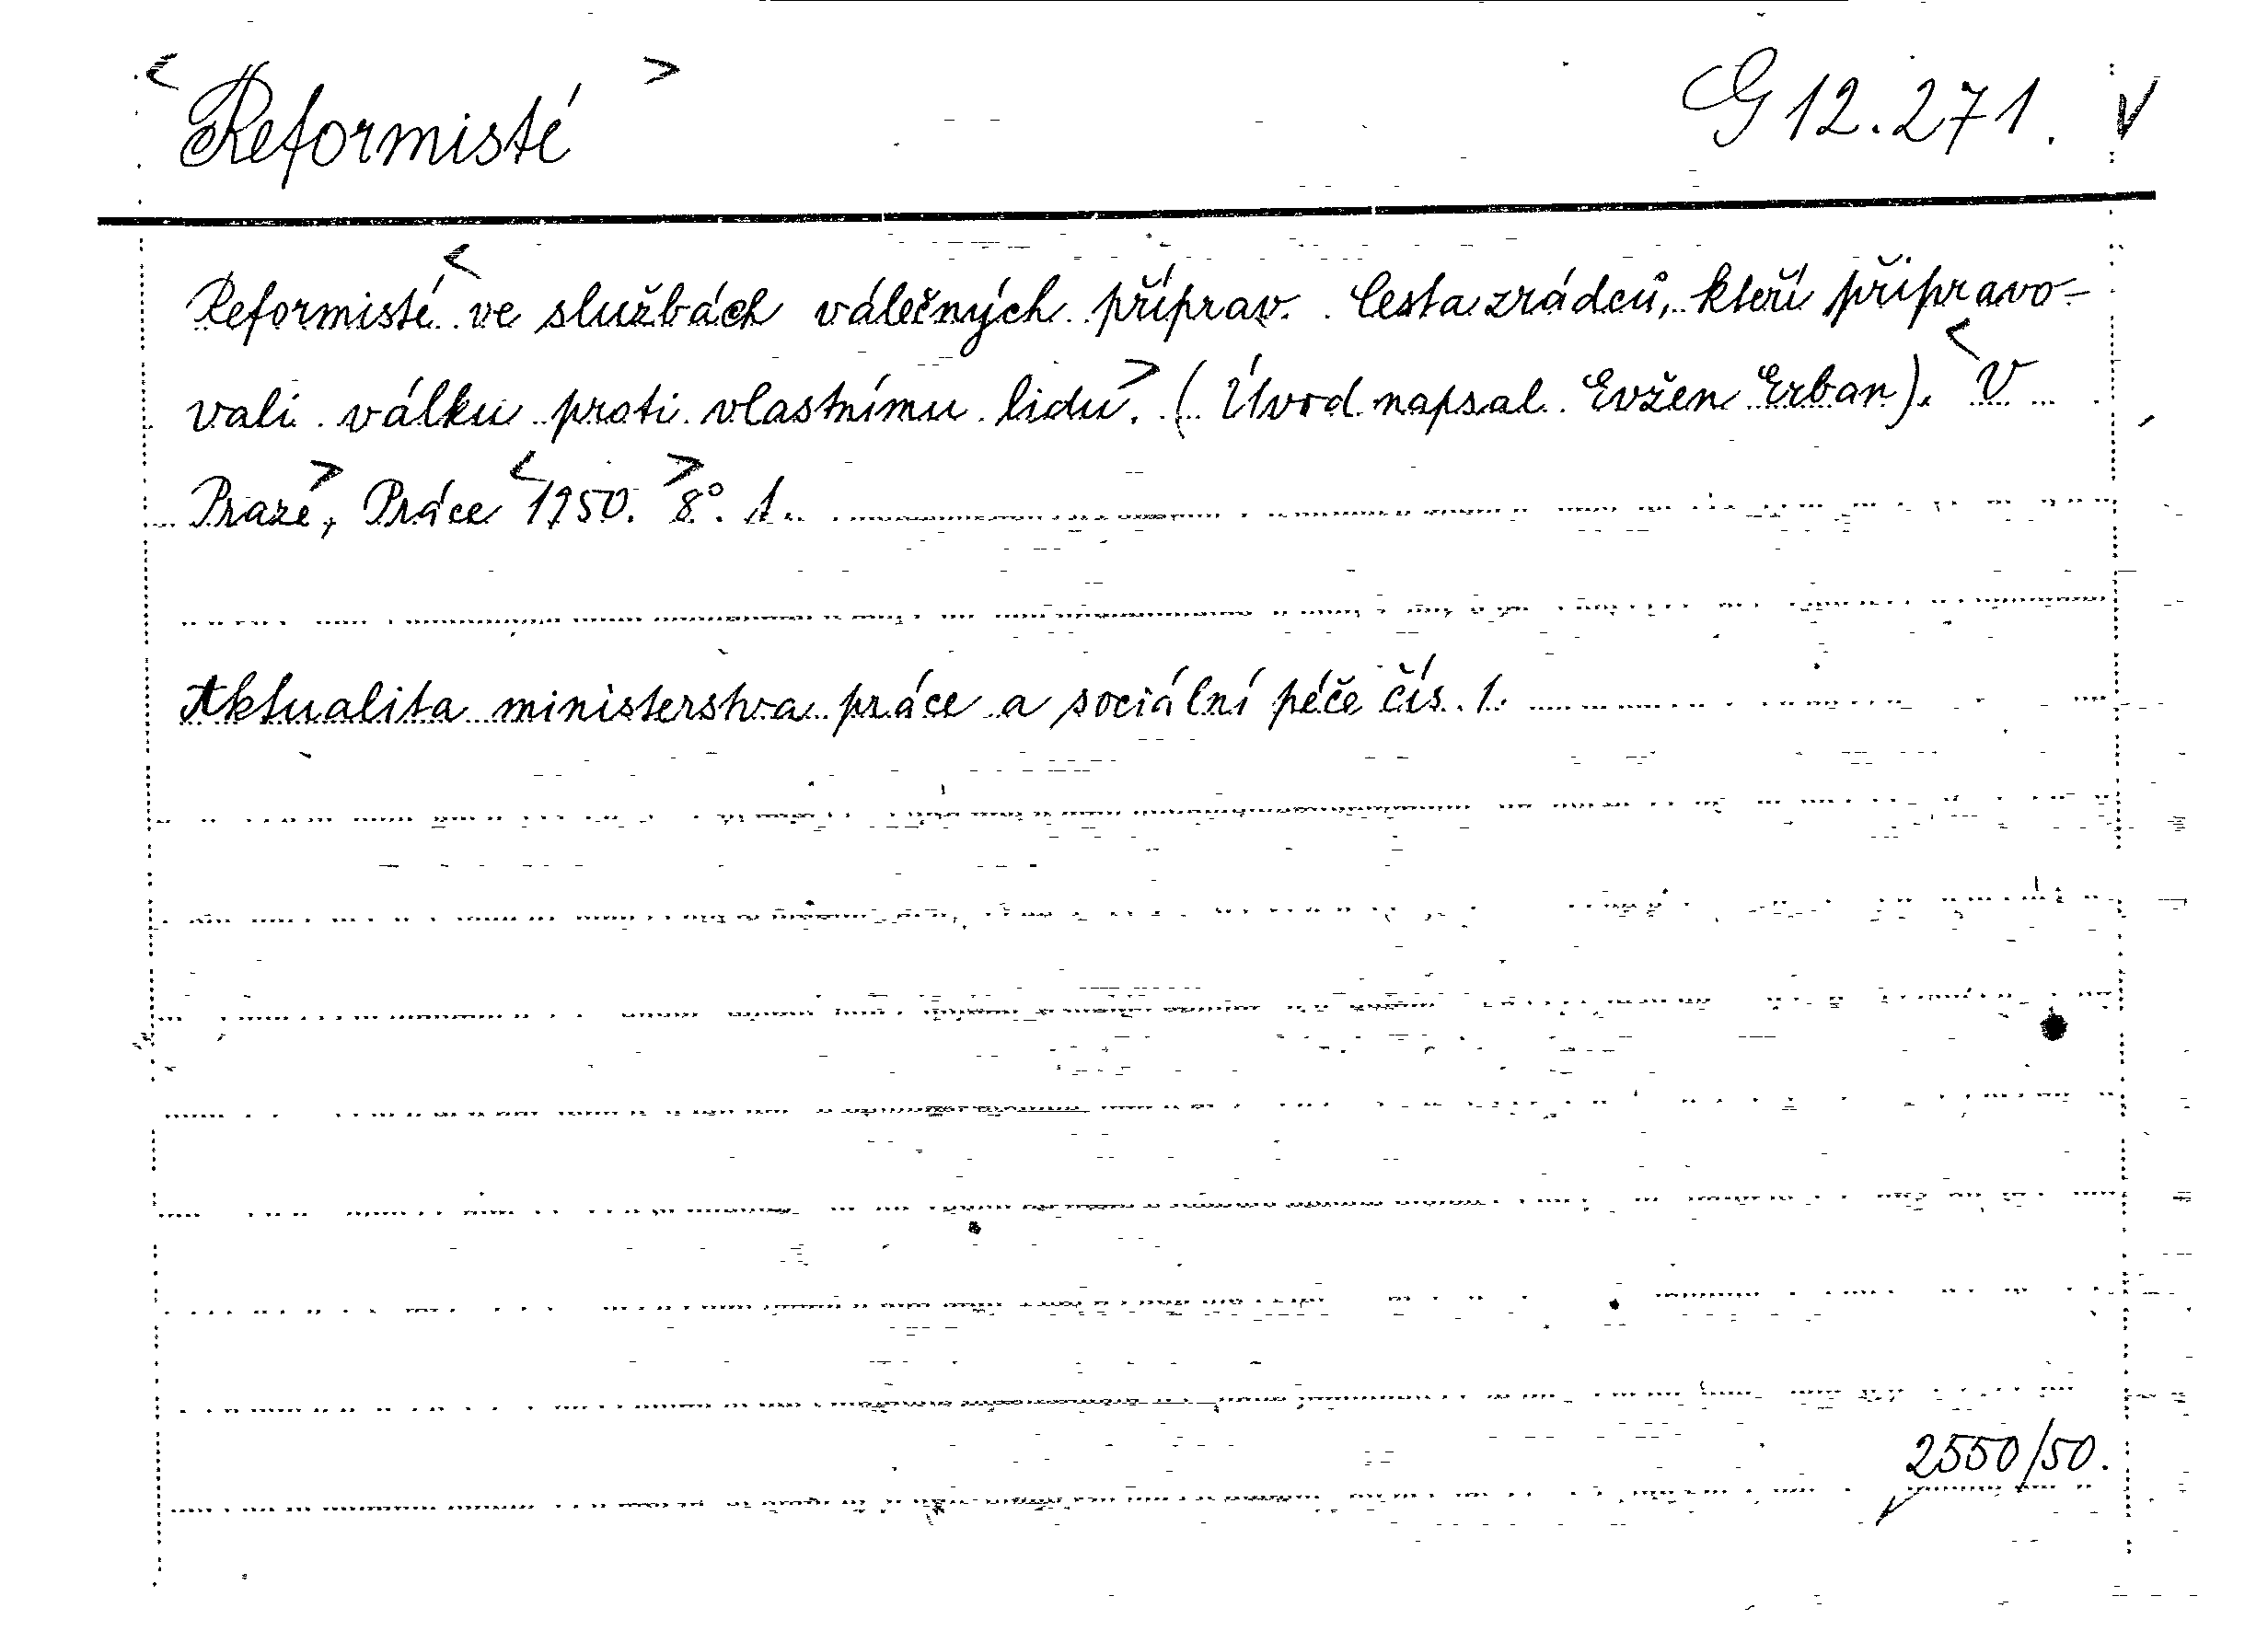 < Reformisté > G 12.271. V
Reformisté < ve službách válečných příprav. Cesta zrádců, kteří připravo-
vali válku proti vlastnímu lidu >. (Úvod napsal Evžen Erban). < V
Praze >, Práce < 1950. > 8°. 1.
Aktualita ministerstva práce a sociální péče čís. 1.
2550/50.